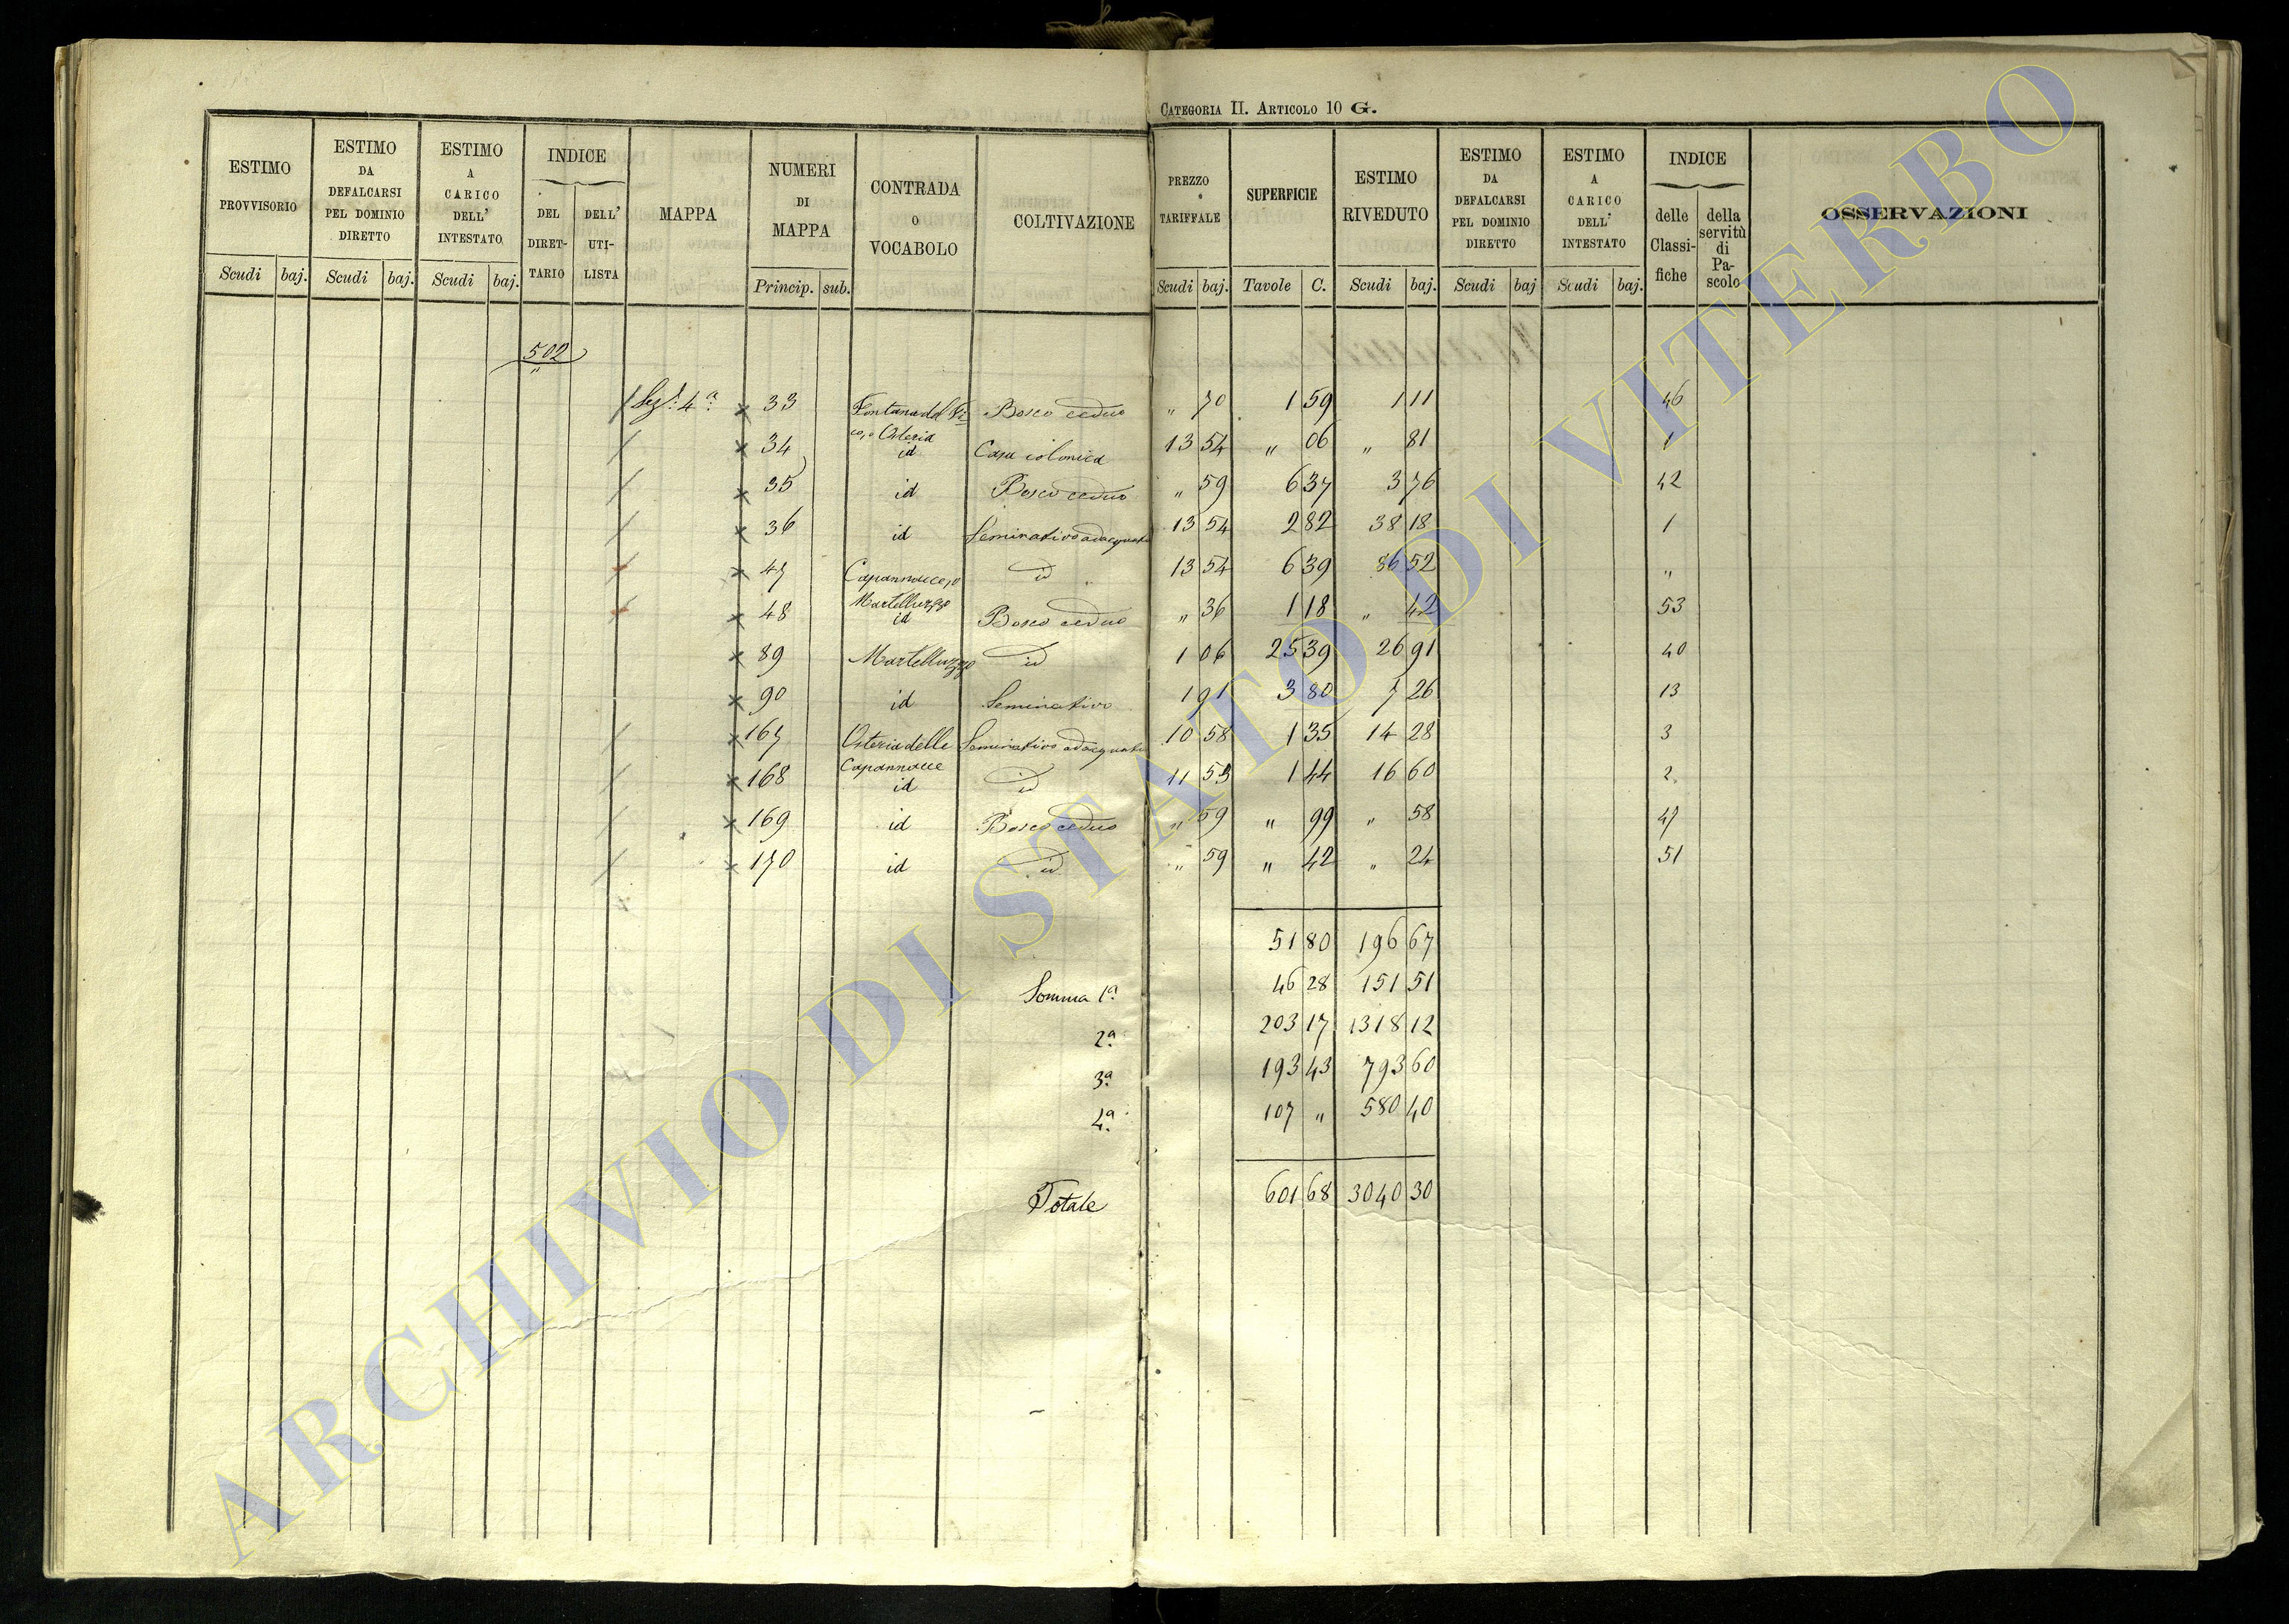 CATEGORIA II. ARTICOLO 10 G.
ESTIMO PROVVISORIO
ESTIMO DA DEFALCARSI PEL DOMINIO DIRETTO
ESTIMO A CARICO DELL' INTESTATO
INDICE
DEL DIRET-TARIO
DELL' UTI-LISTA
MAPPA
NUMERI DI MAPPA
CONTRADA O VOCABOLO
COLTIVAZIONE
PREZZO TARIFFALE
SUPERFICIE
ESTIMO RIVEDUTO
ESTIMO DA DEFALCARSI PEL DOMINIO DIRETTO
ESTIMO A CARICO DELL' INTESTATO
INDICE
delle Classi-fiche
della servitù di Pa-scolo
OSSERVAZIONI
Scudi baj. Scudi baj. Scudi baj. Princip. sub. Scudi baj. Tavole C. Scudi baj. Scudi baj Scudi baj.
502
"
Sez: 4ª 33 Fontana del Fi Bosco ceduo " 70 1 59 1 11 46
co, o Osteria
34 id Casa colonica 13 54 " 06 " 81 1
35 id Bosco ceduo " 59 6 37 3 76 42
36 id Seminativo adacquato 13 54 2 82 38 18 1
47 Capannacce, o id 13 54 6 39 86 52 "
Martelluzzo
48 id Bosco ceduo " 36 1 18 " 42 53
89 Martelluzzo id 1 06 25 39 26 91 40
90 id Seminativo 1 91 3 80 7 26 13
167 Osteria delle Seminativo adacquato 10 58 1 35 14 28 3
Capannacce
168 id id 11 53 1 44 16 60 2
169 id Bosco ceduo " 59 " 99 " 58 47
170 id id " 59 " 42 " 24 51
51 80 196 67
Somma 1ª 46 28 151 51
2ª 203 17 1318 12
3ª 193 43 793 60
4ª 107 " 580 40
Totale 601 68 3040 30
ARCHIVIO DI STATO DI VITERBO